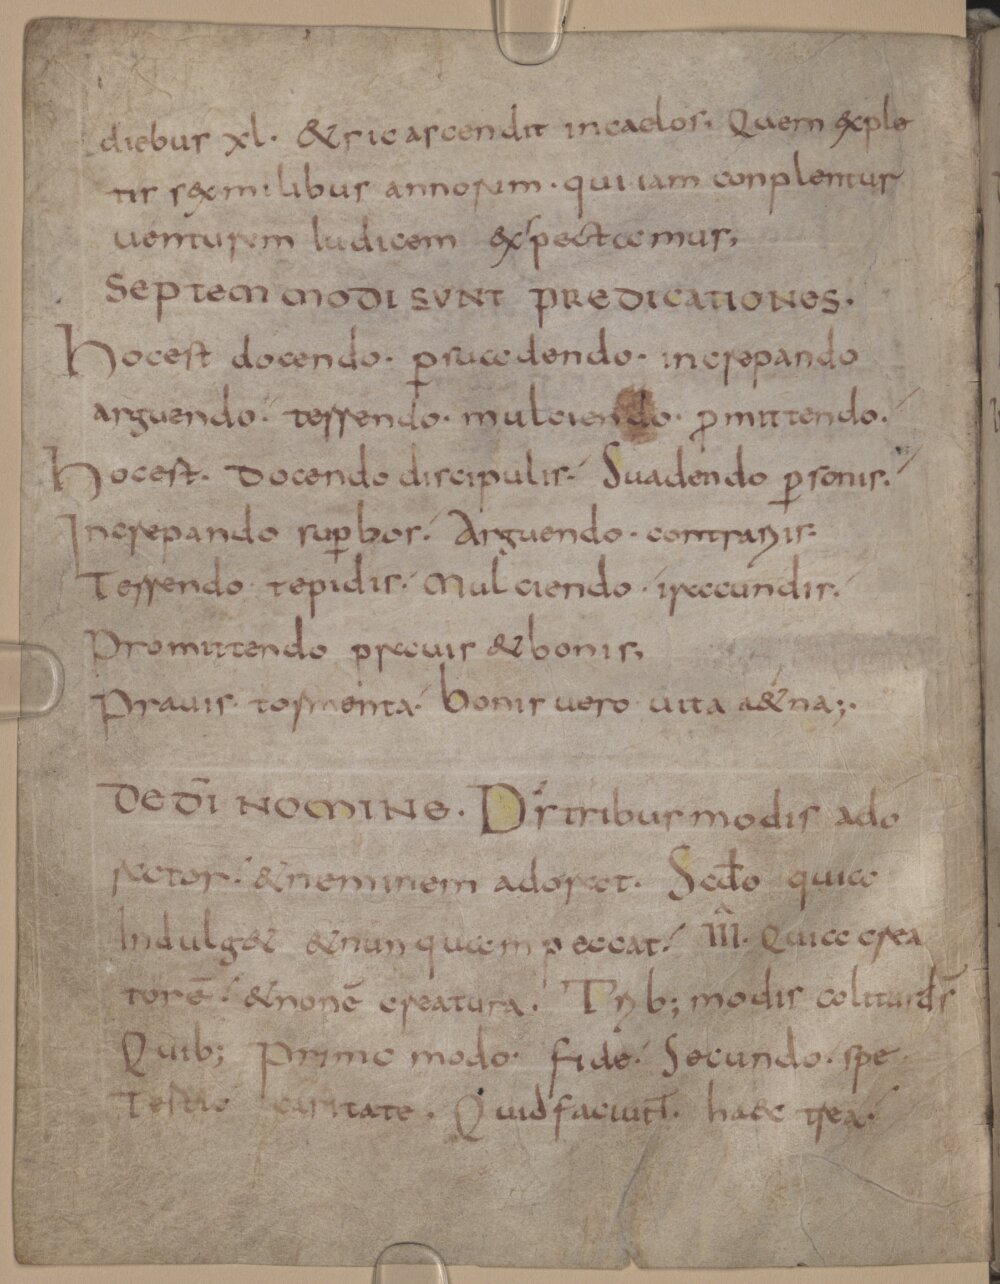 diebus xl. & sic ascendit in caelos. Quem exple
tis sex milibus annorum. qui iam conplentur
uenturum Iudicem exspectamus;
SEPTEM MODI SUNT PREDICATIONES.
Hoc est docendo. ꝑsuadendo. increpando
arguendo. terrendo. mulciendo. ꝓmittendo.
Hoc est. Docendo discipulis. Suadendo ꝑsonis.
Increpando suꝑbos. Arguendo. contrariis.
Terrendo tepidis. Mulciendo. iracundis.
Promittendo prauis & bonis,
Prauis tormenta. bonis uero uita a&na;.
DE DĪ NOMINE. D̄s tribus modis ado
rator. & neminem adorat. Scdo quia
Indulg& & nunquam peccat. III. Quia crea
tor ē. & non ē creatura. Trib; modis colitur d̄s
Quib; Primo modo. fide. Secundo. spe.
Tertio caritate. Quid faciunt̄. haec trea.